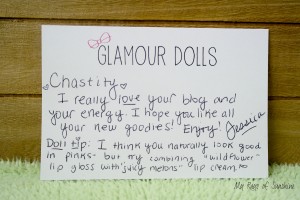 GLAMOUR DOLLS
Chastity
I really love your blog and
your energy. I hope you like all
your new goodies! Enjoy! Jessica
Doll tip: I think you naturally look good
in pinks- but my combining "wildflower"
lip gloss with "juicy melons" lip cream
My Rays of Sunshine